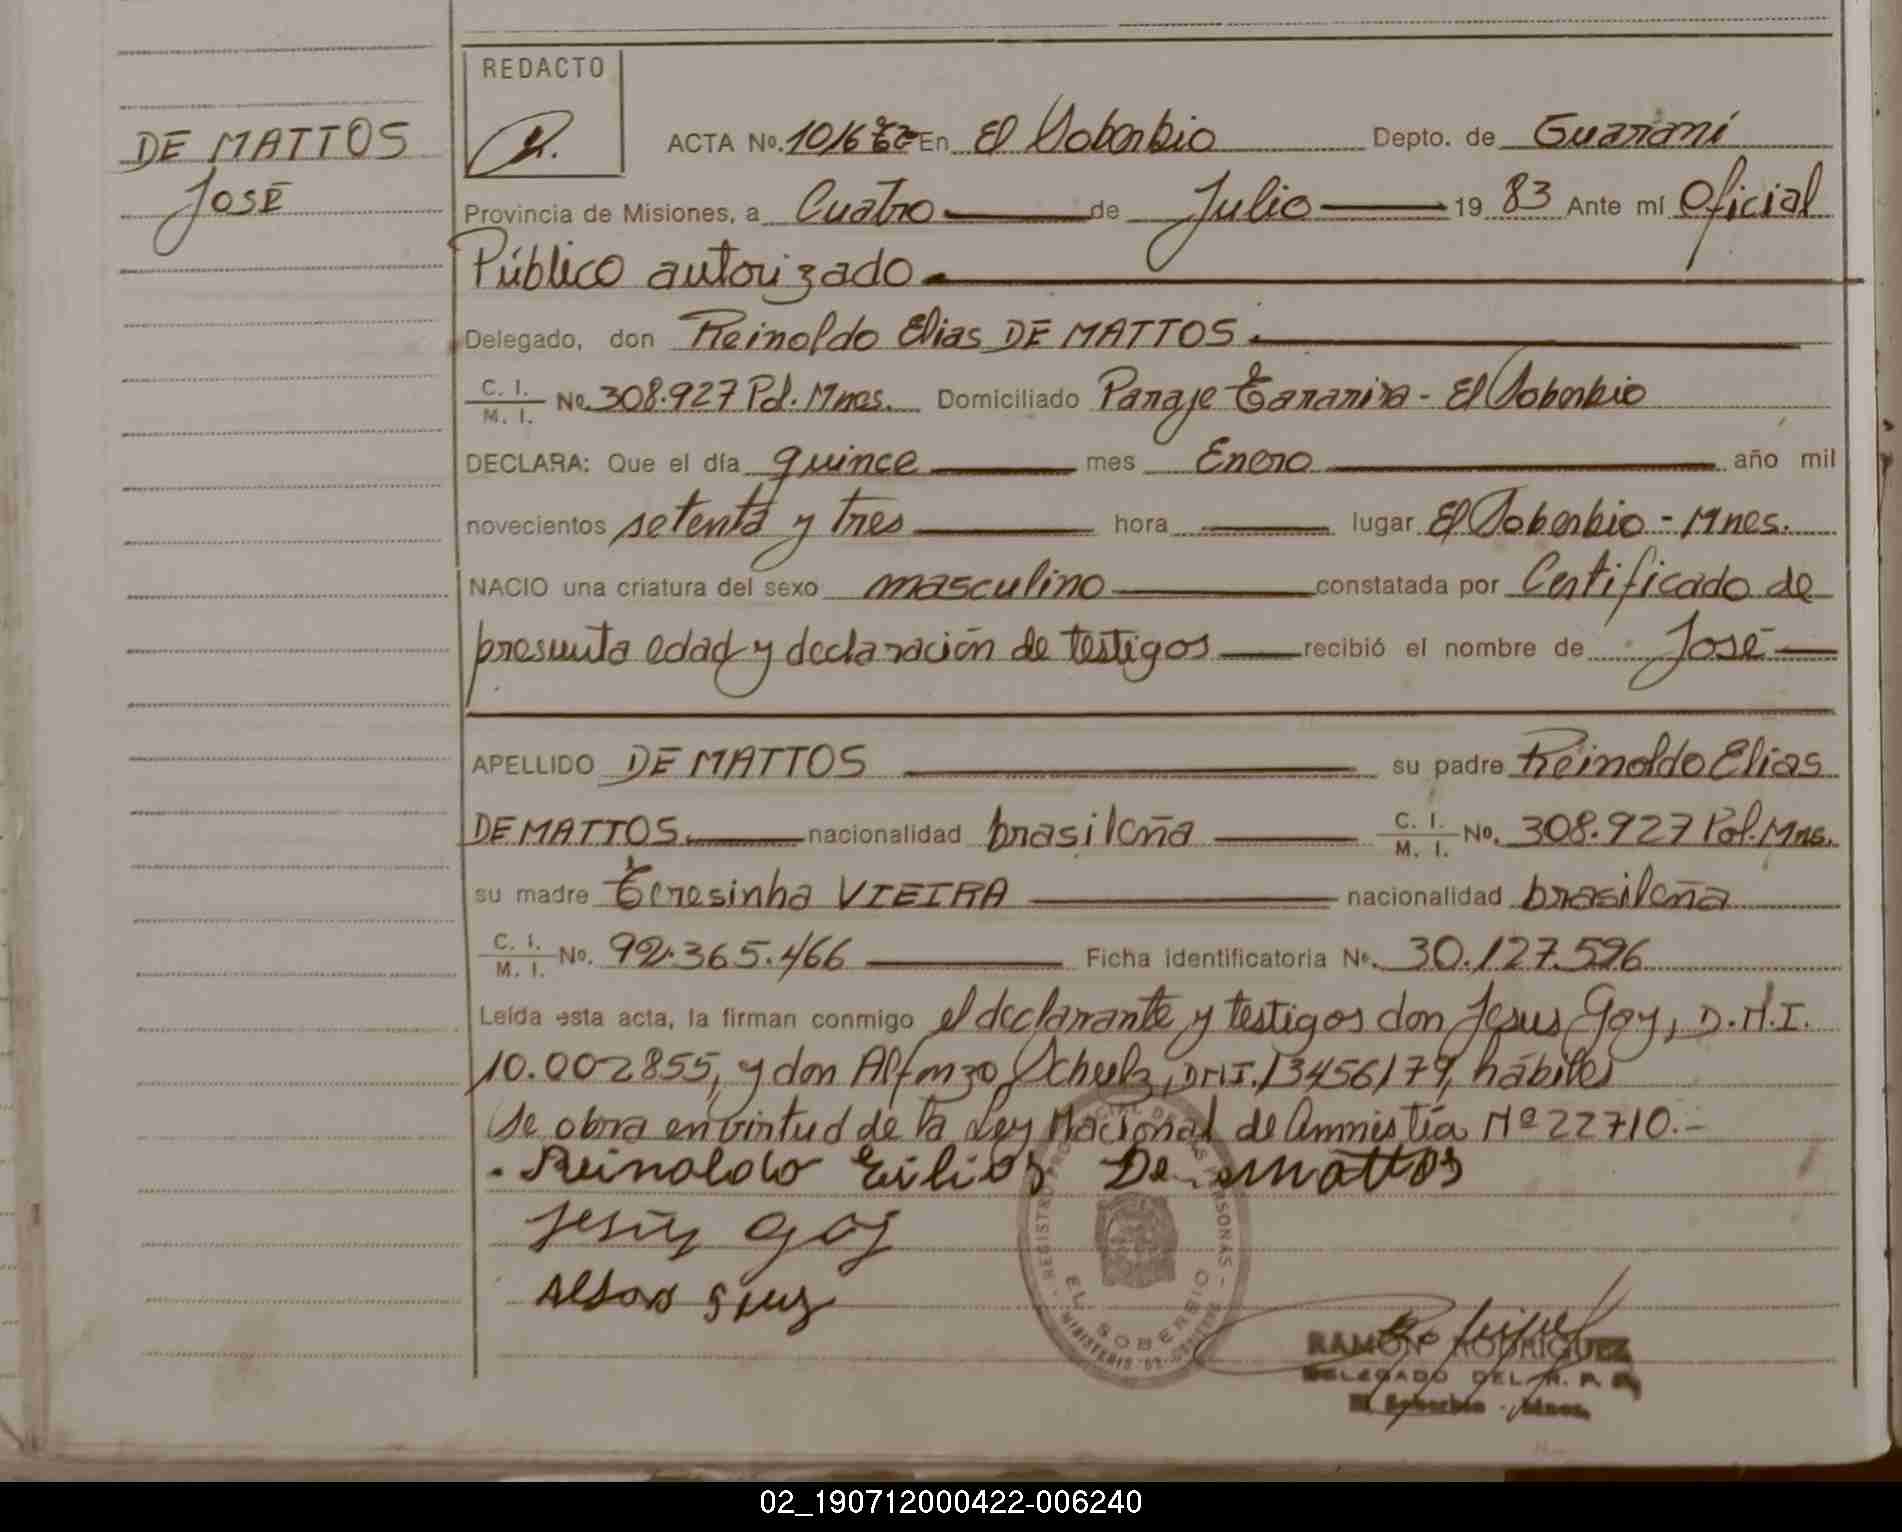 REDACTO
DE MATTOS
JOSÉ
ACTA No. En El Soberbio Depto. de Guaraní
Provincia de Misiones, a Cuatro de Julio 19 83 Ante mí Oficial
Público autorizado
Delegado, don Reinoldo Elias DE MATTOS
C. I. / M. I. No. 308.927 Pol. Mnes. Domiciliado Paraje - El Soberbio
DECLARA: Que el día quince mes Enero año mil
novecientos setenta y tres hora lugar El Soberbio - Mnes.
NACIO una criatura del sexo masculino constatada por Certificado de
presunta edad y declaración de testigos recibió el nombre de José
APELLIDO DE MATTOS su padre Reinoldo Elias
DE MATTOS nacionalidad brasileña C. I. / M. I. No. 308.927 Pol. Mns.
su madre Teresinha VIEIRA nacionalidad brasileña
C. I. / M. I. No. 92.365.466 Ficha identificatoria No. 30.127.596
Leída esta acta, la firman conmigo el declarante y testigos don Jesus Goy, D.N.I.
10.002855, y don Alfonzo DNI. 13456179, hábiles
Se obra en virtud de la Ley Nacional de Amnistía Nº 22710.-
Reinoldo De Mattos
Jesús Goy
REGISTRO PROVINCIAL DE LAS PERSONAS - MINISTERIO DE GOBIERNO
EL SOBERBIO
RAMON RODRIGUEZ
DELEGADO DEL R. P. P.
El Soberbio - Mnes.
02_190712000422-006240